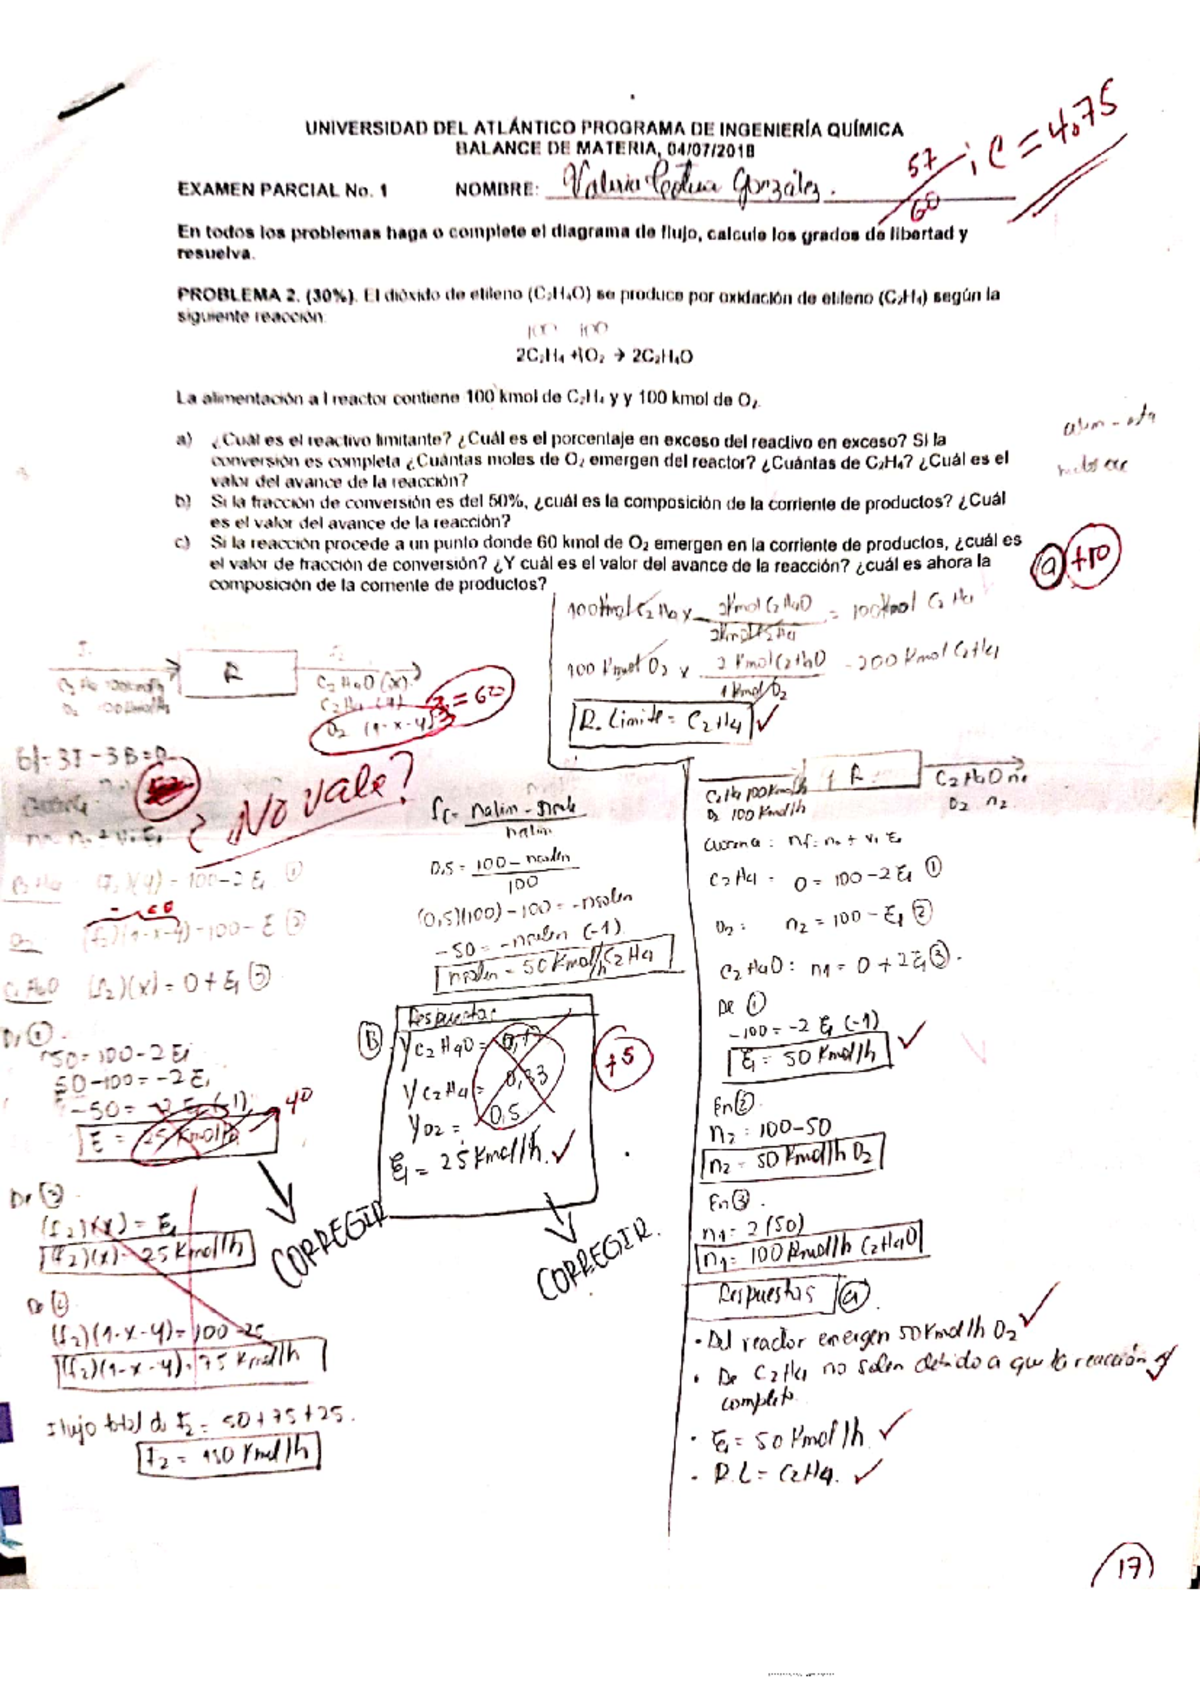 UNIVERSIDAD DEL ATLÁNTICO PROGRAMA DE INGENIERÍA QUÍMICA
BALANCE DE MATERIA, 04/07/2018
57/60 ; C = 4,75
EXAMEN PARCIAL No. 1 NOMBRE: González.
En todos los problemas haga o complete el diagrama de flujo, calcule los grados de libertad y
resuelva.
PROBLEMA 2. (30%). El dióxido de etileno (C₂H₄O) se produce por oxidación de etileno (C₂H₄) según la
siguiente reacción
100 100
2C₂H₄ +1O₂ → 2C₂H₄O
La alimentación a l reactor contiene 100 kmol de C₂H₄ y y 100 kmol de O₂.
a) ¿Cuál es el reactivo limitante? ¿Cuál es el porcentaje en exceso del reactivo en exceso? Si la
conversión es completa ¿Cuántas moles de O₂ emergen del reactor? ¿Cuántas de C₂H₄? ¿Cuál es el
valor del avance de la reacción?
b) Si la fracción de conversión es del 50%, ¿cuál es la composición de la corriente de productos? ¿Cuál
es el valor del avance de la reacción?
c) Si la reacción procede a un punto donde 60 kmol de O₂ emergen en la corriente de productos, ¿cuál es
el valor de fracción de conversión? ¿Y cuál es el valor del avance de la reacción? ¿cuál es ahora la
composición de la corriente de productos?
a +10
R. Limite = C₂H₄ ✓
R
C₂H₄O (x)
O₂ (1-x-y)
= 60
¿No vale?
C₂H₄ = (y) = 100-2ξ₁ ①
(f₂)(1-x-y) = 100-ξ ②
C₂H₄O (f₂)(x) = 0+ξ₁ ③
De ①.
50=100-2ξ₁
50-100=-2ξ₁
ξ = 25 Kmol/h
40
CORREGIR
De ③
(f₂)(x) = ξ₁
(f₂)(x) = 25 Kmol/h
De ②
(f₂)(1-x-y)=100-25
(f₂)(1-x-y)=75 Kmol/h
Flujo total de F₂ = 50+75+25.
F₂ = 150 Kmol/h
fc = nalim - nsale
nalim
0,5 = 100 - nsalen
100
(0,5)(100)-100 = -nsalen
-50 = -nsalen (-1)
nsalen = 50 Kmol/h C₂H₄
B
Respuestas
YC₂H₄O = 0,17
YC₂H₄ = 0,33
YO₂ = 0,5
ξ₁ = 25 Kmol/h. ✓
+5
CORREGIR.
R
C₂H₄ 100 Kmol/h
O₂ 100 Kmol/h
C₂H₄O n₁
O₂ n₂
C₂H₄ = 0 = 100-2ξ₁ ①
O₂: n₂ = 100-ξ₁ ②
C₂H₄O: n₁ = 0+2ξ₁ ③.
De ①
-100 = -2ξ₁ (-1)
ξ₁ = 50 Kmol/h ✓
En ②.
n₂ = 100-50
n₂ = 50 Kmol/h O₂
En ③.
n₁ = 2(50)
n₁ = 100 Kmol/h C₂H₄O
Respuestas a.
• Del reactor emergen 50 Kmol/h O₂ ✓
• De C₂H₄ no salen debido a que la reacción es
completa.
• ξ₁ = 50 Kmol/h ✓
• R.L = C₂H₄. ✓
17